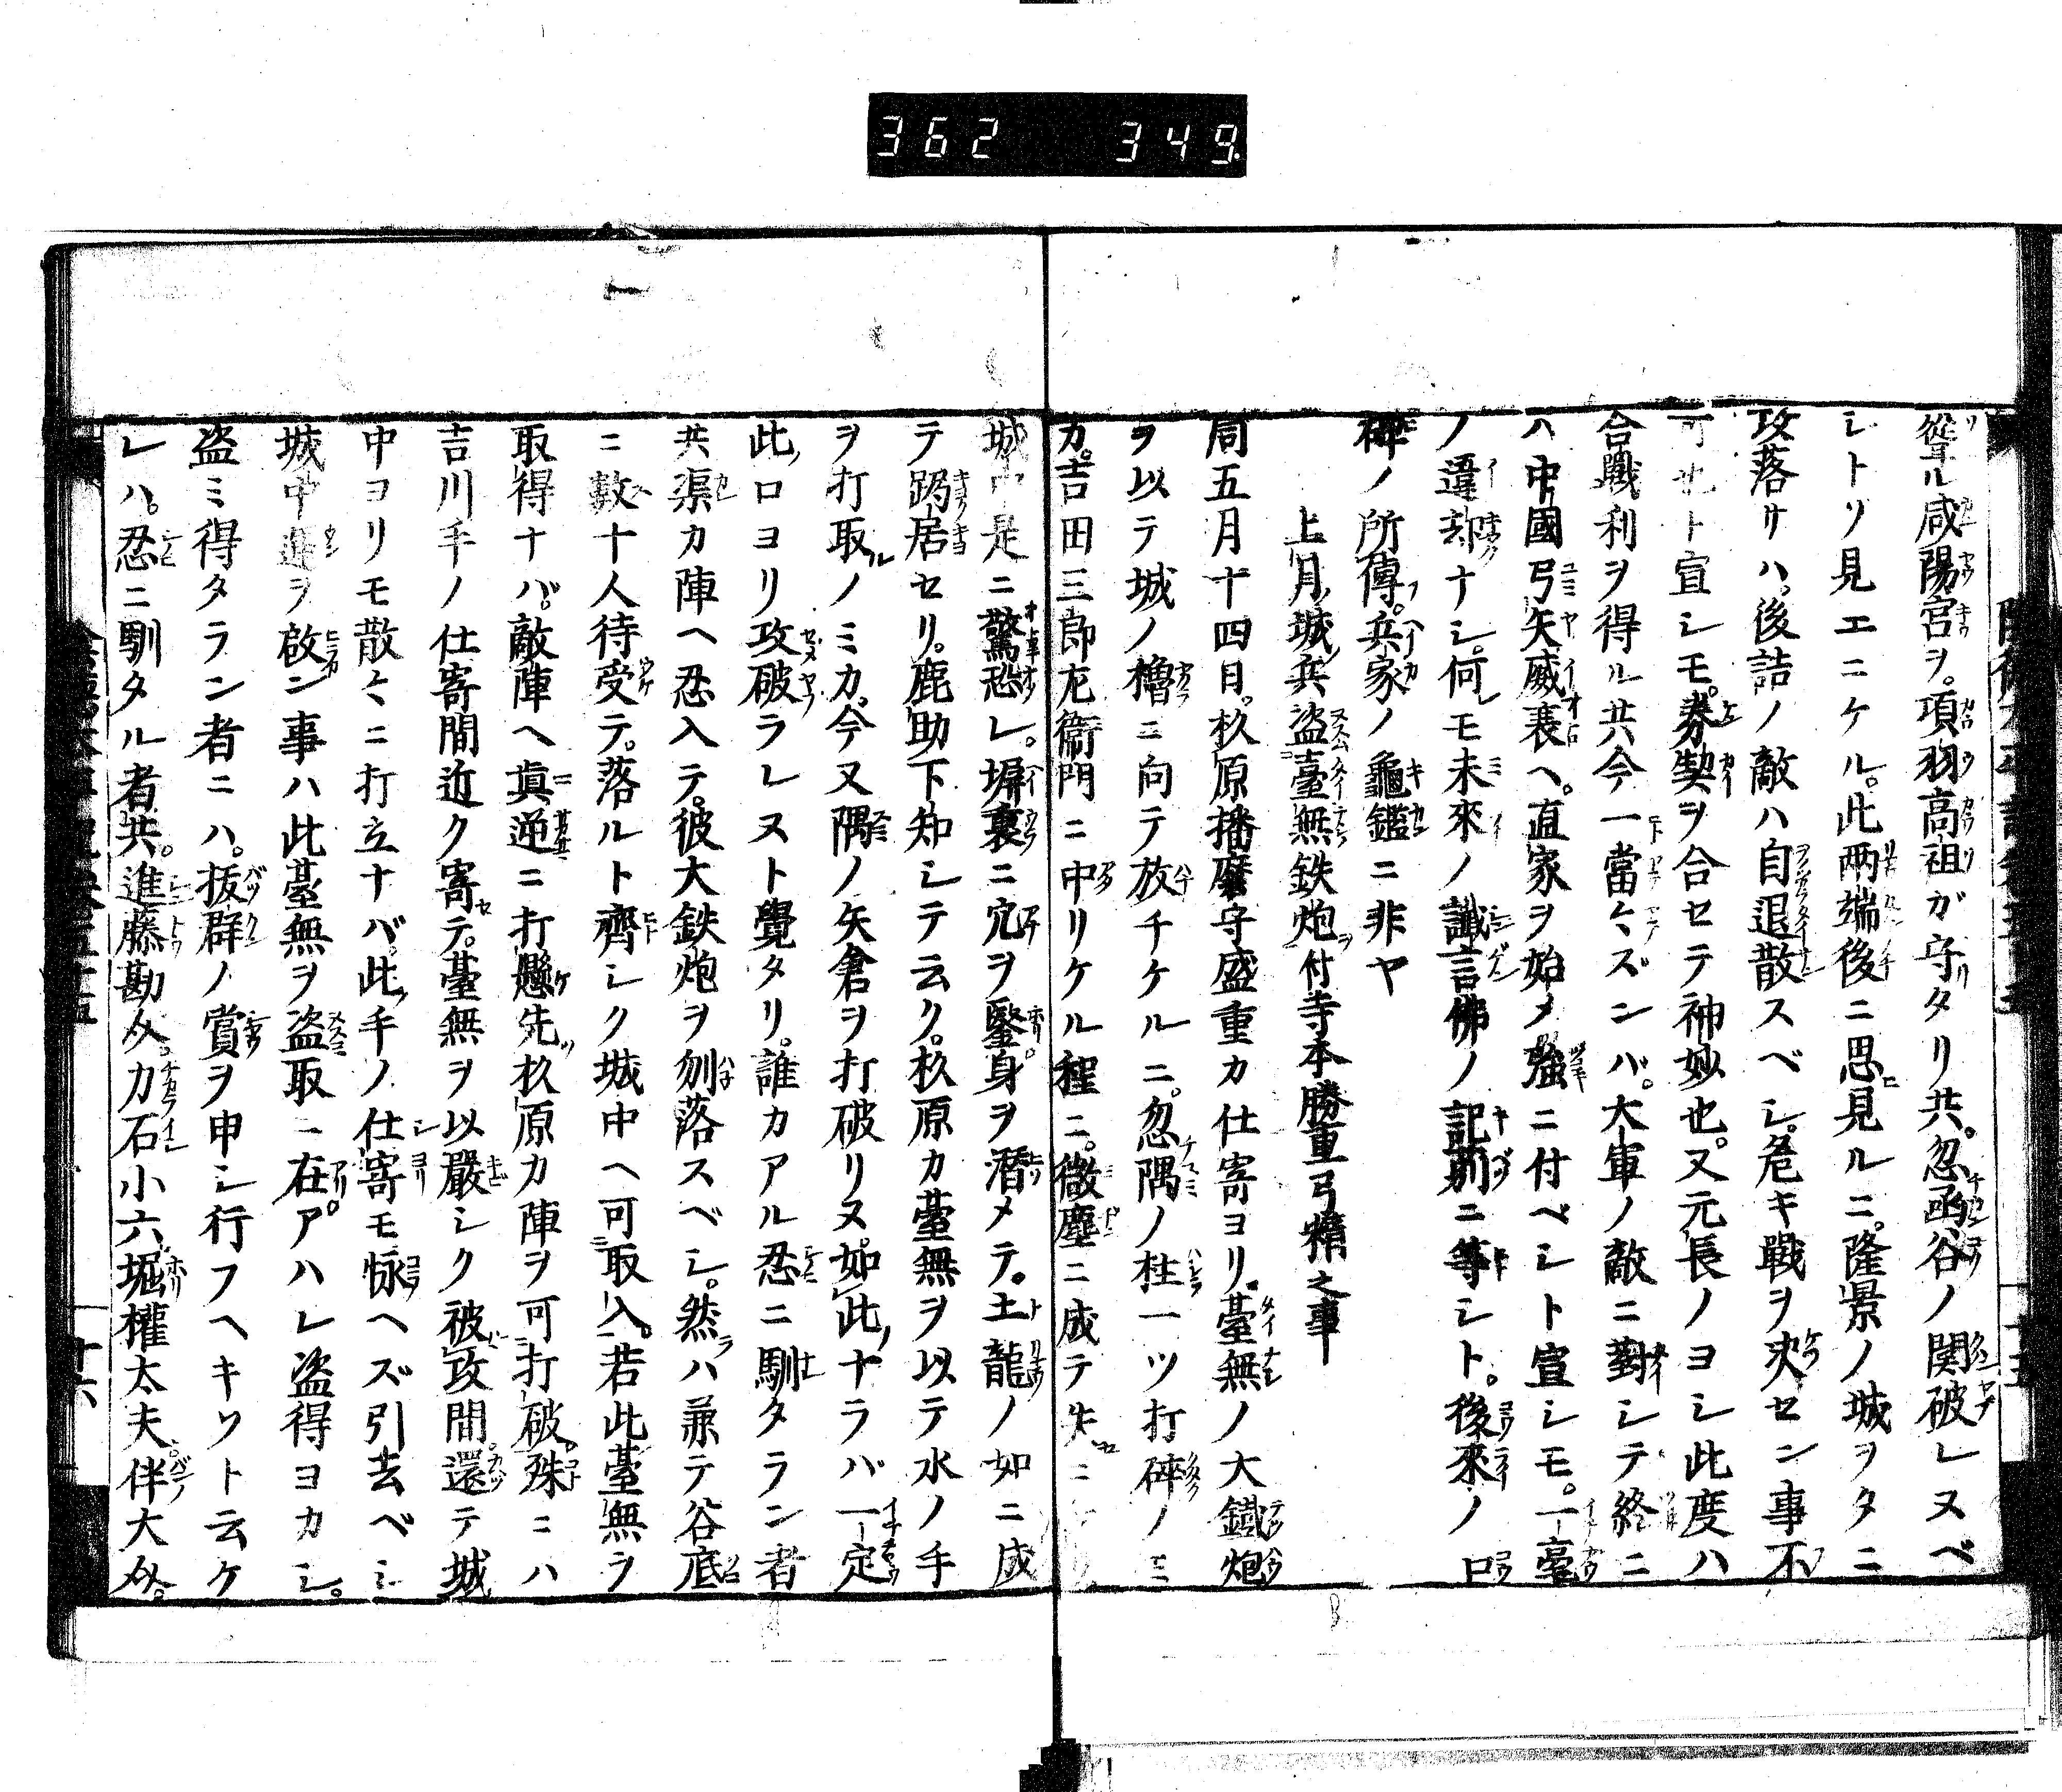 362 349.
聳ル咸陽宮ヲ。項羽高祖ガ守リタリ共。忽函谷ノ関破レヌベ
シトソ見エニケル。此両端後ニ思見ルニ。隆景ノ城ヲタニ
攻落サハ。後詰ノ敵ハ自退散スベシ。危キ戰ヲ決セン事不
可也ト宣シモ。券契ヲ合セテ神妙也。又元長ノヨシ此度ハ
合戰利ヲ得ル共今一當々ズンバ。大軍ノ敵ニ對シテ終ニ
ハ中國弓矢威衰ヘ。直家ヲ始メ強ニ付ベシト宣シモ。一毫
ノ違却ナシ。何レモ未來ノ讖言佛ノ記莂ニ等シト。後來ノ口
碑ノ所傳。兵家ノ龜鑑ニ非ヤ
上月城兵盗臺無鉄炮付寺本勝重弓精之事
同五月十四日。杦原播磨守盛重カ仕寄ヨリ。臺無ノ大鐵炮
ヲ以テ城ノ櫓ニ向テ放チケルニ。忽隅ノ柱一ツ打碎ノミ
カ。吉田三郎左衞門ニ中リケル程ニ。微塵ニ成テ失ニ
城中是ニ驚恐レ。塀裏ニ穴ヲ鑿身ヲ潜メテ。土龍ノ如ニ成
テ跼居セリ。鹿助下知シテ云ク。杦原カ臺無ヲ以テ水ノ手
ヲ打取ルノミカ。今又隅ノ矢倉ヲ打破リヌ。如此ナラハ一定
此口ヨリ攻破ラレヌト覺タリ。誰カアル忍ニ馴タラン者
共渠カ陣ヘ忍入テ。彼大鉄炮ヲ刎落スベシ。然ラハ兼テ谷底
ニ數十人待受テ。落ルト齊シク城中ヘ可取入。若此臺無ヲ
取得ナバ。敵陣ヘ眞逆ニ打懸ケ先ツ杦原カ陣ヲ可打破。殊ニハ
吉川手ノ仕寄間近ク寄テ。臺無ヲ以嚴シク被攻間。還テ城
中ヨリモ散々ニ打立ナバ。此手ノ仕寄モ怺ヘズ引去ベシ
城中運ヲ啟ン事ハ此臺無ヲ盗取ニ在。アハレ盗得ヨカシ。
盗ミ得タラン者ニハ。拔群ノ賞ヲ申シ行フヘキソト云ケ
レハ。忍ニ馴タル者共。進藤勘介。力石小六。堀權太夫。伴大介。
十六